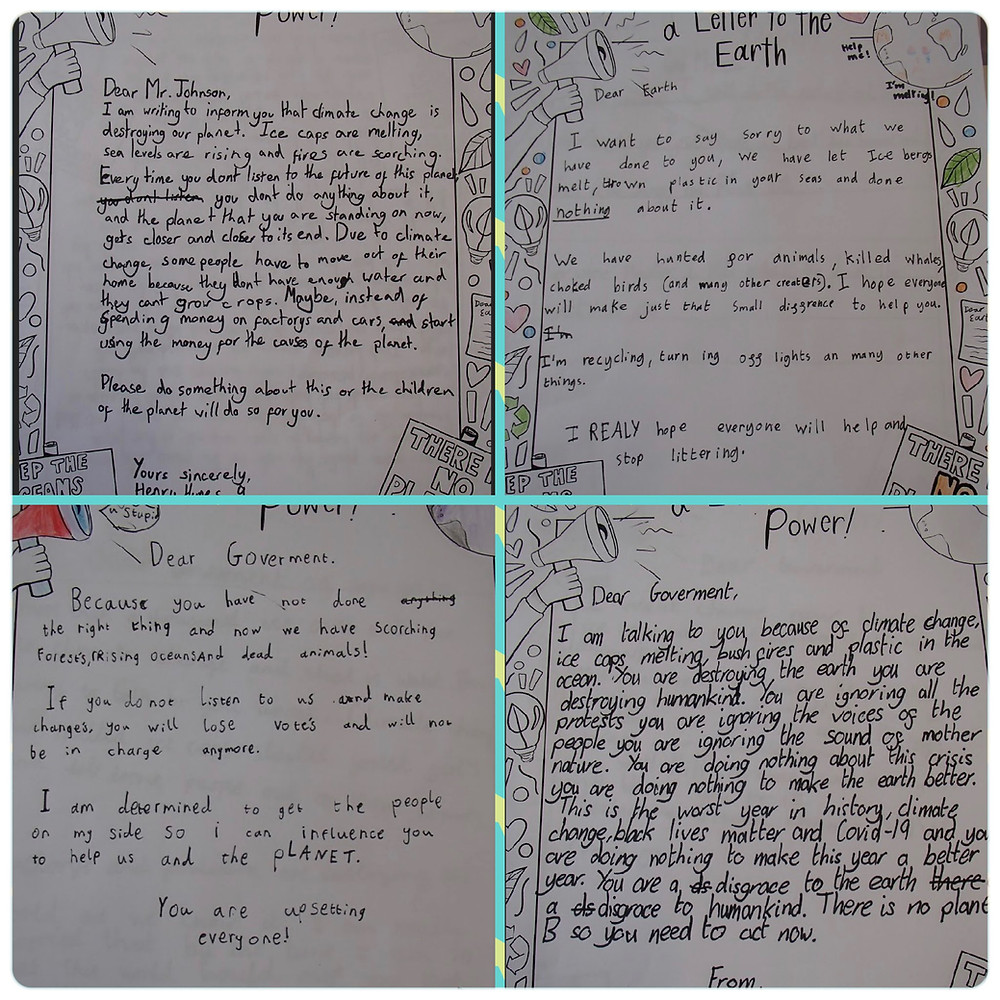 Power!
Dear Mr. Johnson,
I am writing to inform you that climate change is
destroying our planet. Ice caps are melting,
sea levels are rising and fires are scorching.
Every time you dont listen to the future of this planet,
you dont listen, you dont do anything about it,
and the planet that you are standing on now,
gets closer and closer to its end. Due to climate
change, some people have to move out of their
home because they dont have enough water and
they cant grow crops. Maybe, instead of
spending money on factorys and cars, and start
using the money for the causes of the planet.
Please do something about this or the children
of the planet will do so for you.
Yours sincerely,
Henry
EP THE
EANS
THERE
NO
PL
a Letter to the
Earth
Help
me!
I'm
melting!
Dear Earth
I want to say sorry to what we
have done to you, we have let Ice bergs
melt, thrown plastic in your seas and done
nothing about it.
We have hunted for animals, killed whales,
choked birds (and many other creaters). I hope everyone
will make just that small diffrance to help you.
I'm
I'm recycling, turn ing off lights an many other
things.
I REALY hope everyone will help and
stop littering.
Dear
Ear
EP THE
THERE
NO
u stupid
Power!
Dear Goverment.
Because you have not done anything
the right thing and now we have scorching
Forests, rising oceans And dead animals!
If you do not listen to us and make
changes, you will lose votes and will not
be in charge anymore.
I am determined to get the people
on my side so i can influence you
to help us and the pLANET.
You are upsetting
everyone!
a
Power!
Dear Goverment,
I am talking to you because of climate change,
ice caps melting, bush fires and plastic in the
ocean. You are destroying the earth you are
destroying humankind. You are ignoring all the
protests you are ignoring the voices of the
people you are ignoring the sound of mother
nature. You are doing nothing about this crisis
you are doing nothing to make the earth better.
This is the worst year in history, climate
change, black lives matter and Covid-19 and you
are doing nothing to make this year a better
year. You are a ds disgrace to the earth there
a dis disgrace to humankind. There is no plant
B so you need to act now.
From
T